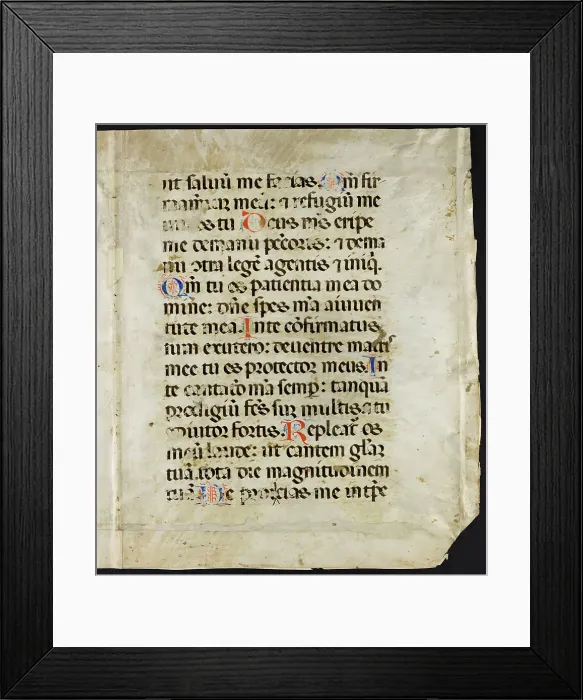 ut saluū me facias. Qm̄ fir
mamentū meū: ⁊ refugiū me
um es tu Deus ms̄ eripe
me demanu peccoris: ⁊ dema
nu cōtra legē agentis ⁊ iniq̄.
Qm̄ tu es patientia mea do
mine: dn̄e spes m̄a aiuuen
tute mea. In te cōfirmatus
sum exutero: deuentre matris
mee tu es protector meus. In
te cantatō m̄a semp̄: tanquā
prodigiū fc̄s sum multis ⁊ tu
adiutor fortis. Repleat̄ os
meū laude: ut cantem glāz
tuā. tota die magnitudinem
tuā. Ne proicias me intp̄e